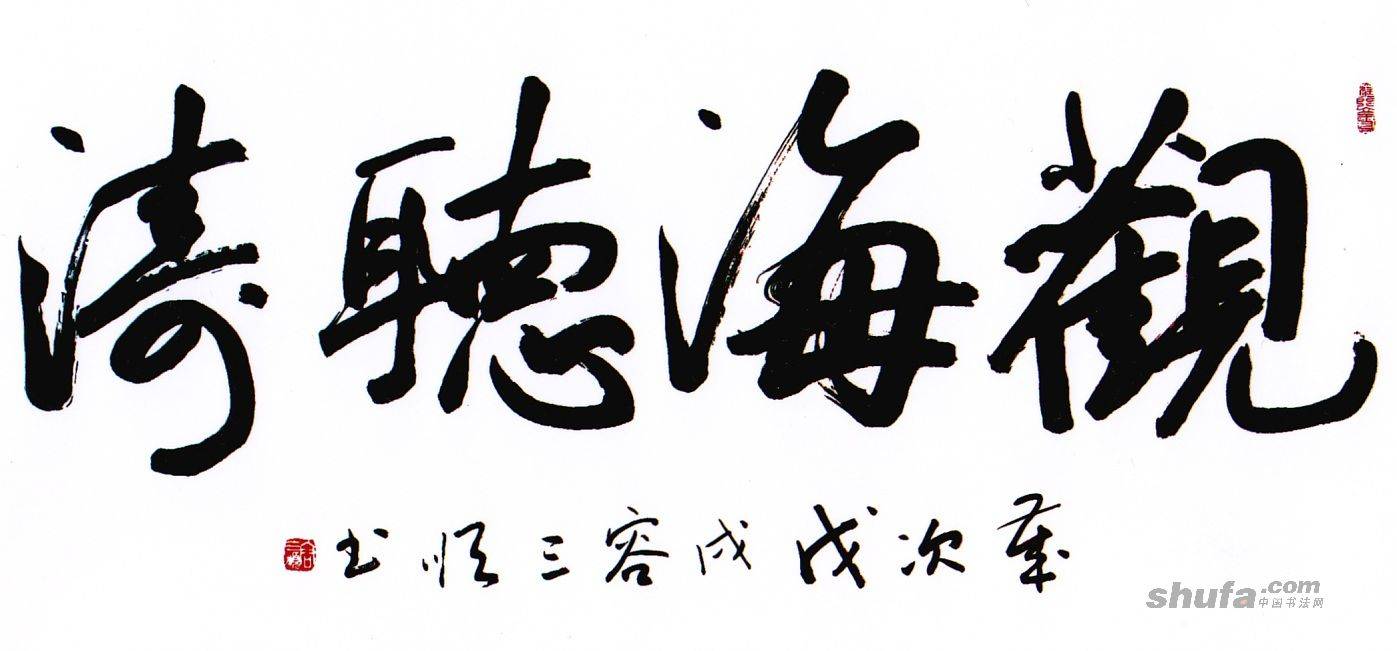 觀海聽濤
歲次戊戌容三順书
shufa.com
中国书法网